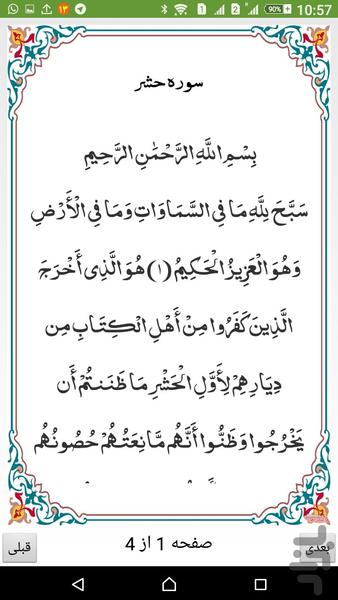 ۱۳ 1 2 90% 10:57
سوره حشر
بِسْمِ اللَّهِ الرَّحْمَٰنِ الرَّحِيمِ
سَبَّحَ لِلَّهِ مَا فِي السَّمَاوَاتِ وَمَا فِي الْأَرْضِ
وَهُوَ الْعَزِيزُ الْحَكِيمُ (۱) هُوَ الَّذِي أَخْرَجَ
الَّذِينَ كَفَرُوا مِنْ أَهْلِ الْكِتَابِ مِن
دِيَارِهِمْ لِأَوَّلِ الْحَشْرِ مَا ظَنَنتُمْ أَن
يَخْرُجُوا وَظَنُّوا أَنَّهُم مَّانِعَتُهُمْ حُصُونُهُم
بعدی صفحه 1 از 4 قبلی